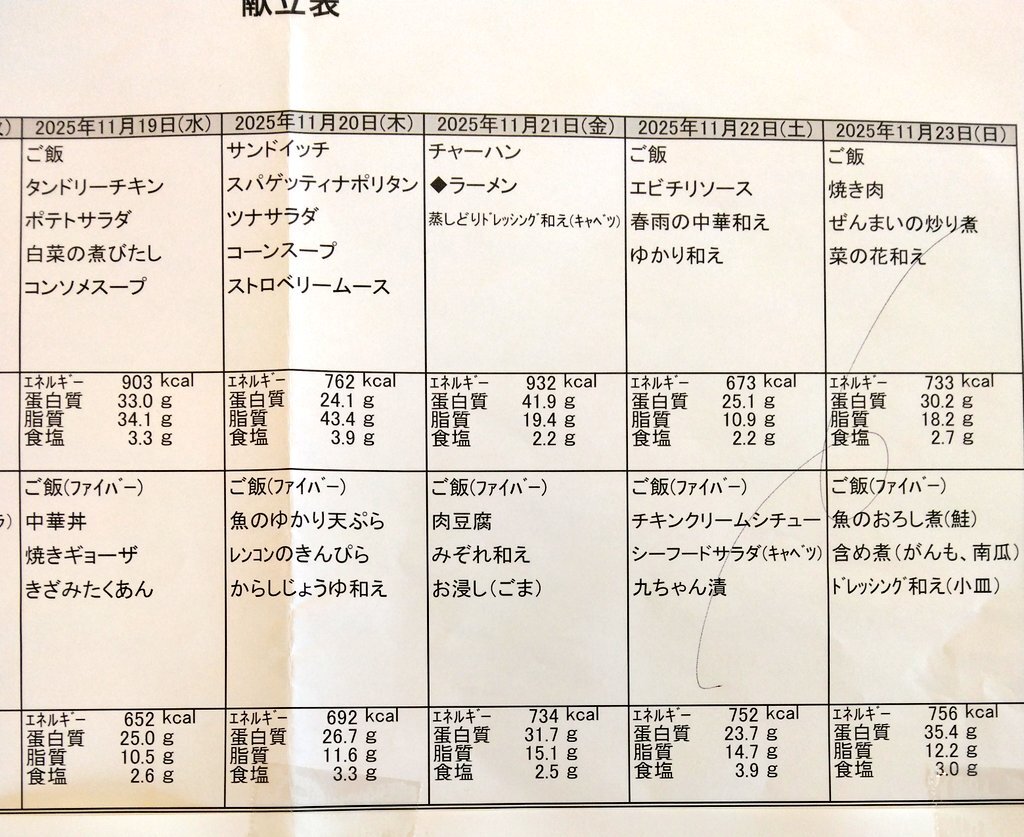 献立表
2025年11月19日(水) 2025年11月20日(木) 2025年11月21日(金) 2025年11月22日(土) 2025年11月23日(日)
ご飯 サンドイッチ チャーハン ご飯 ご飯
タンドリーチキン スパゲッティナポリタン ◆ラーメン エビチリソース 焼き肉
ポテトサラダ ツナサラダ 蒸しどりﾄﾞﾚｯｼﾝｸﾞ和え(ｷｬﾍﾞﾂ) 春雨の中華和え ぜんまいの炒り煮
白菜の煮びたし コーンスープ ゆかり和え 菜の花和え
コンソメスープ ストロベリームース
ｴﾈﾙｷﾞｰ 903 kcal ｴﾈﾙｷﾞｰ 762 kcal ｴﾈﾙｷﾞｰ 932 kcal ｴﾈﾙｷﾞｰ 673 kcal ｴﾈﾙｷﾞｰ 733 kcal
蛋白質 33.0 g 蛋白質 24.1 g 蛋白質 41.9 g 蛋白質 25.1 g 蛋白質 30.2 g
脂質 34.1 g 脂質 43.4 g 脂質 19.4 g 脂質 10.9 g 脂質 18.2 g
食塩 3.3 g 食塩 3.9 g 食塩 2.2 g 食塩 2.2 g 食塩 2.7 g
ご飯(ﾌｧｲﾊﾞｰ) ご飯(ﾌｧｲﾊﾞｰ) ご飯(ﾌｧｲﾊﾞｰ) ご飯(ﾌｧｲﾊﾞｰ) ご飯(ﾌｧｲﾊﾞｰ)
中華丼 魚のゆかり天ぷら 肉豆腐 チキンクリームシチュー 魚のおろし煮(鮭)
焼きギョーザ ﾚﾝｺﾝのきんぴら みぞれ和え シーフードサラダ(ｷｬﾍﾞﾂ) 含め煮(がんも、南瓜)
きざみたくあん からしじょうゆ和え お浸し(ごま) 九ちゃん漬 ﾄﾞﾚｯｼﾝｸﾞ和え(小皿)
ｴﾈﾙｷﾞｰ 652 kcal ｴﾈﾙｷﾞｰ 692 kcal ｴﾈﾙｷﾞｰ 734 kcal ｴﾈﾙｷﾞｰ 752 kcal ｴﾈﾙｷﾞｰ 756 kcal
蛋白質 25.0 g 蛋白質 26.7 g 蛋白質 31.7 g 蛋白質 23.7 g 蛋白質 35.4 g
脂質 10.5 g 脂質 11.6 g 脂質 15.1 g 脂質 14.7 g 脂質 12.2 g
食塩 2.6 g 食塩 3.3 g 食塩 2.5 g 食塩 3.9 g 食塩 3.0 g